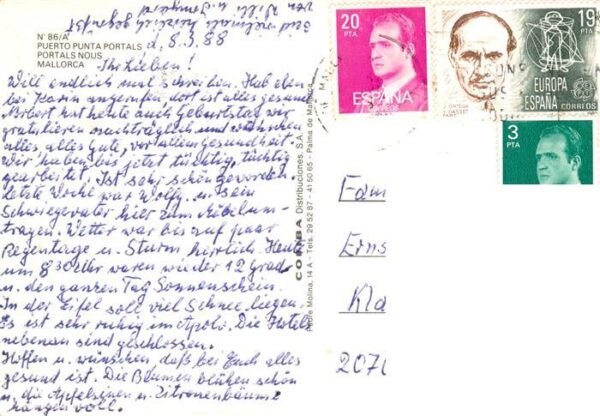 Nº 86/A
PUERTO PUNTA PORTALS
PORTALS NOUS
MALLORCA
d. 8.3.88
Ihr Lieben!
Will endlich mal schreiben. Hab eben
bei Karin angerufen, dort ist alles gesund
Norbert hat heute auch Geburtstag, wir
gratulieren nachträglich und wünschen
alles, alles Gute, vor allem Gesundheit.
Wir haben bis jetzt tüchtig, tüchtig
gearbeitet. Ist sehr schön geworden.
letzte Woche war Wolfg. u. sein
Schwiegervater hier zum Möbelum-
tragen. Wetter war bis auf paar
Regentage u. Sturm herrlich. Heute
um 8 30 Uhr waren wieder 12 Grad
u. den ganzen Tag Sonnenschein.
In der Eifel soll viel Schnee liegen.
Es ist sehr ruhig im Apolo. Die Hotels
nebenan sind geschlossen.
Hoffen u. wünschen, daß bei Euch alles
gesund ist. Die Blumen blühen schön
u. die Apfelsinen u. Zitronenbäume
hängen voll.
COMBA Distribuciones, S.A.
Pedre Molina, 14 A - Tels. 29 52 87 - 41 50 65 - Palma de Mallorca
20
PTA
ESPAÑA
CORREOS
J. ORTEGA
Y GASSET
19
PTA
EUROPA
ESPAÑA
CORREOS
3
PTA
Fam
Erns
Kla
207